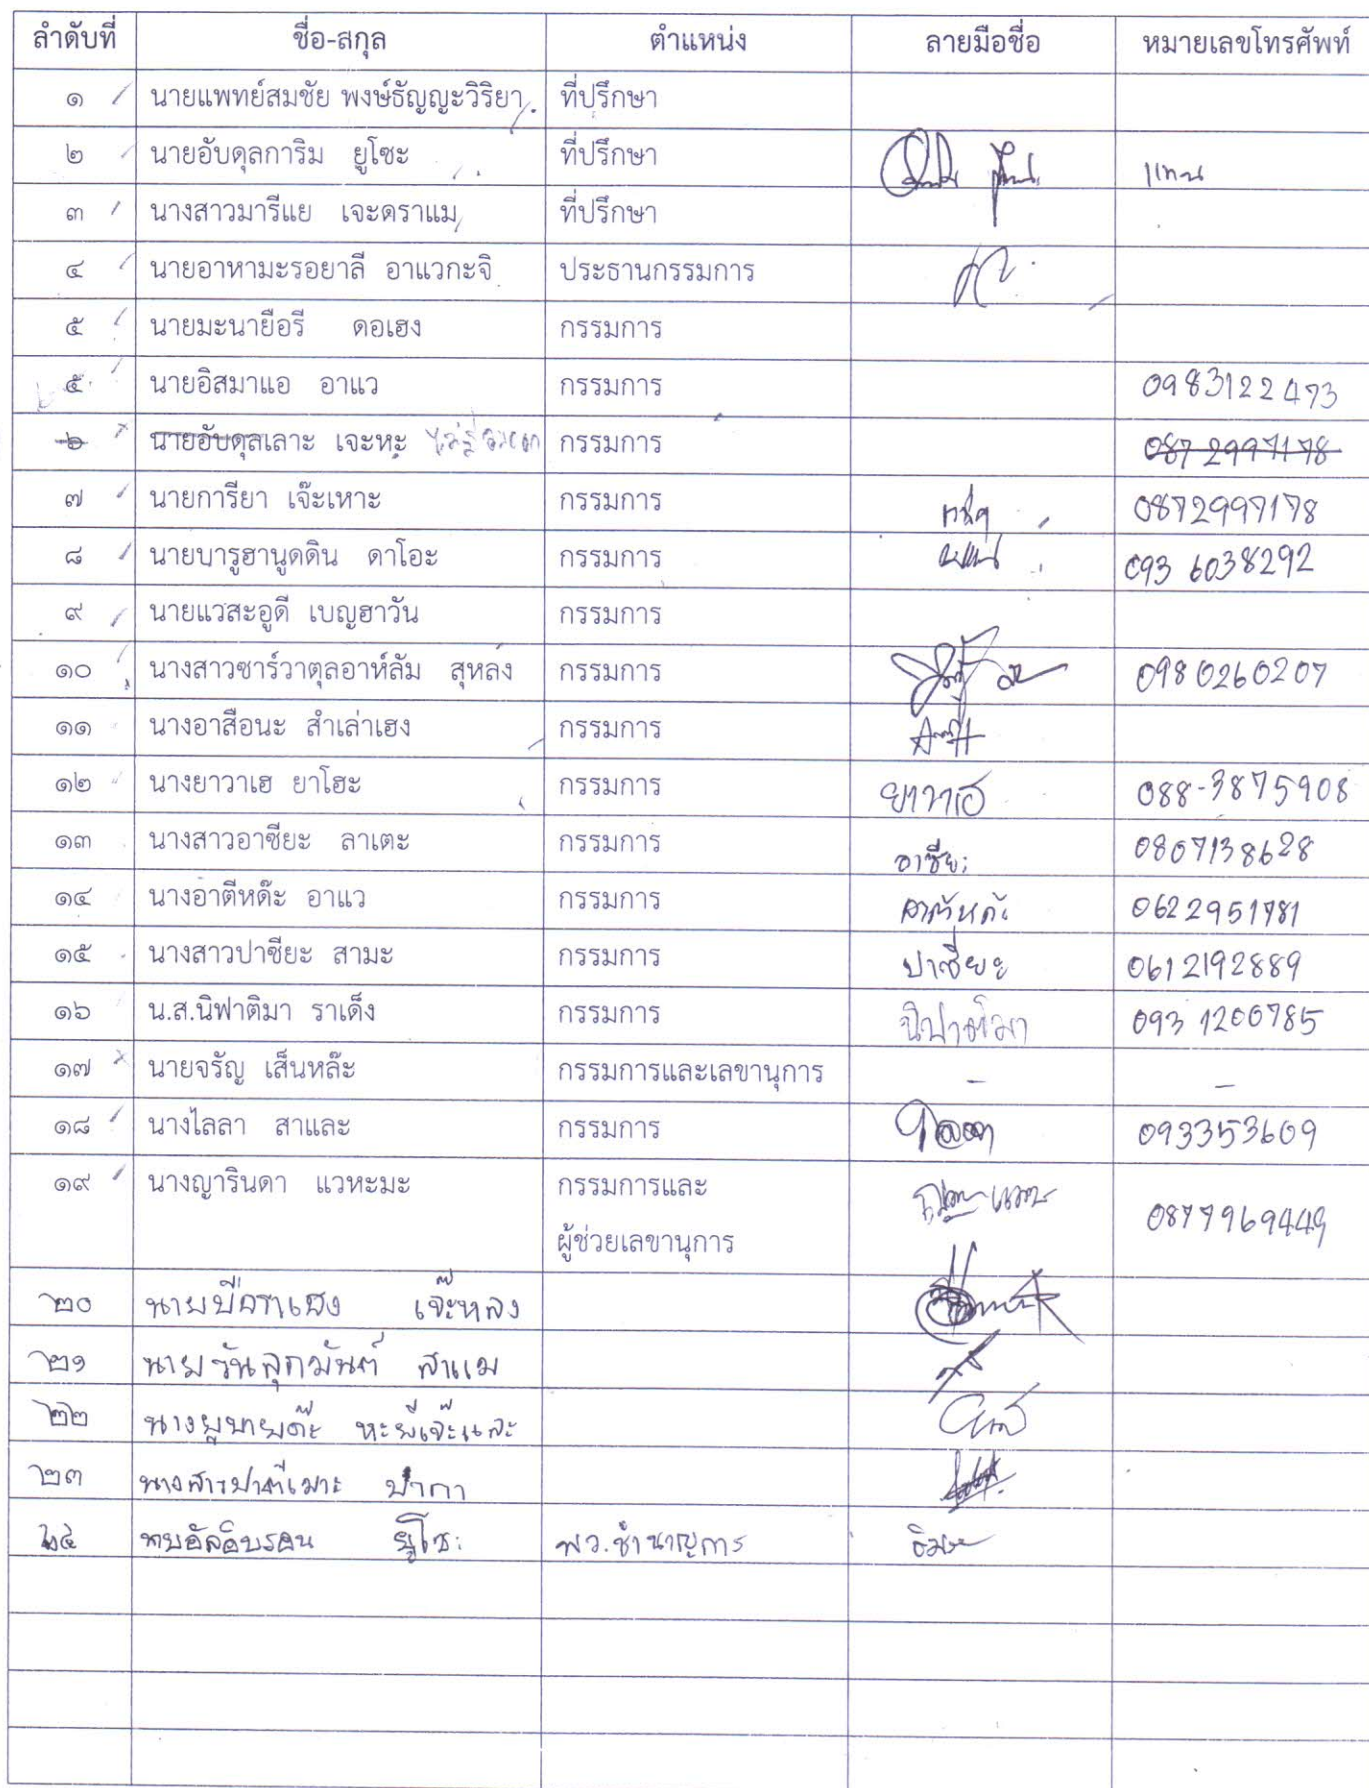 ลำดับที่ ชื่อ-สกุล ตำแหน่ง ลายมือชื่อ หมายเลขโทรศัพท์
๑ นายแพทย์สมชัย พงษ์ธัญญะวิริยา ที่ปรึกษา
๒ นายอับดุลการิม ยูโซะ ที่ปรึกษา แทน
๓ นางสาวมารีแย เจะดราแม ที่ปรึกษา
๔ นายอาหามะรอยาลี อาแวกะจิ ประธานกรรมการ
๕ นายมะนายือรี ดอเฮง กรรมการ
๕ นายอิสมาแอ อาแว กรรมการ 0983122473
๖ นายอับดุลเลาะ เจะหะ กรรมการ 0872997178
๗ นายการียา เจ๊ะเหาะ กรรมการ 0872997178
๘ นายบารูฮานูดดิน ดาโอะ กรรมการ 093 6038292
๙ นายแวสะอูดี เบญฮาวัน กรรมการ
๑๐ นางสาวซาร์วาตุลอาห์ลัม สุหลง กรรมการ 0980260207
๑๑ นางอาสือนะ สำเล่าเฮง กรรมการ
๑๒ นางยาวาเฮ ยาโฮะ กรรมการ ยาวาเฮ 088-3875908
๑๓ นางสาวอาซียะ ลาเตะ กรรมการ อาซียะ 0807138628
๑๔ นางอาตีหด๊ะ อาแว กรรมการ อาตีหด๊ะ 0622951781
๑๕ นางสาวปาซียะ สามะ กรรมการ ปาซียะ 0612192889
๑๖ น.ส.นิฟาติมา ราเด็ง กรรมการ นิฟาติมา 093 1200785
๑๗ นายจรัญ เส็นหล๊ะ กรรมการและเลขานุการ - -
๑๘ นางไลลา สาและ กรรมการ ไลลา 093353609
๑๙ นางญารินดา แวหะมะ กรรมการและ 0877969449
ผู้ช่วยเลขานุการ
๒๐ นายบือราเฮง เจ๊ะหลง
๒๑ นายวันสุกมันต์ สาแม
๒๒
๒๓ ปากา
๒๔ ยูโซะ พว.ชำนาญการ